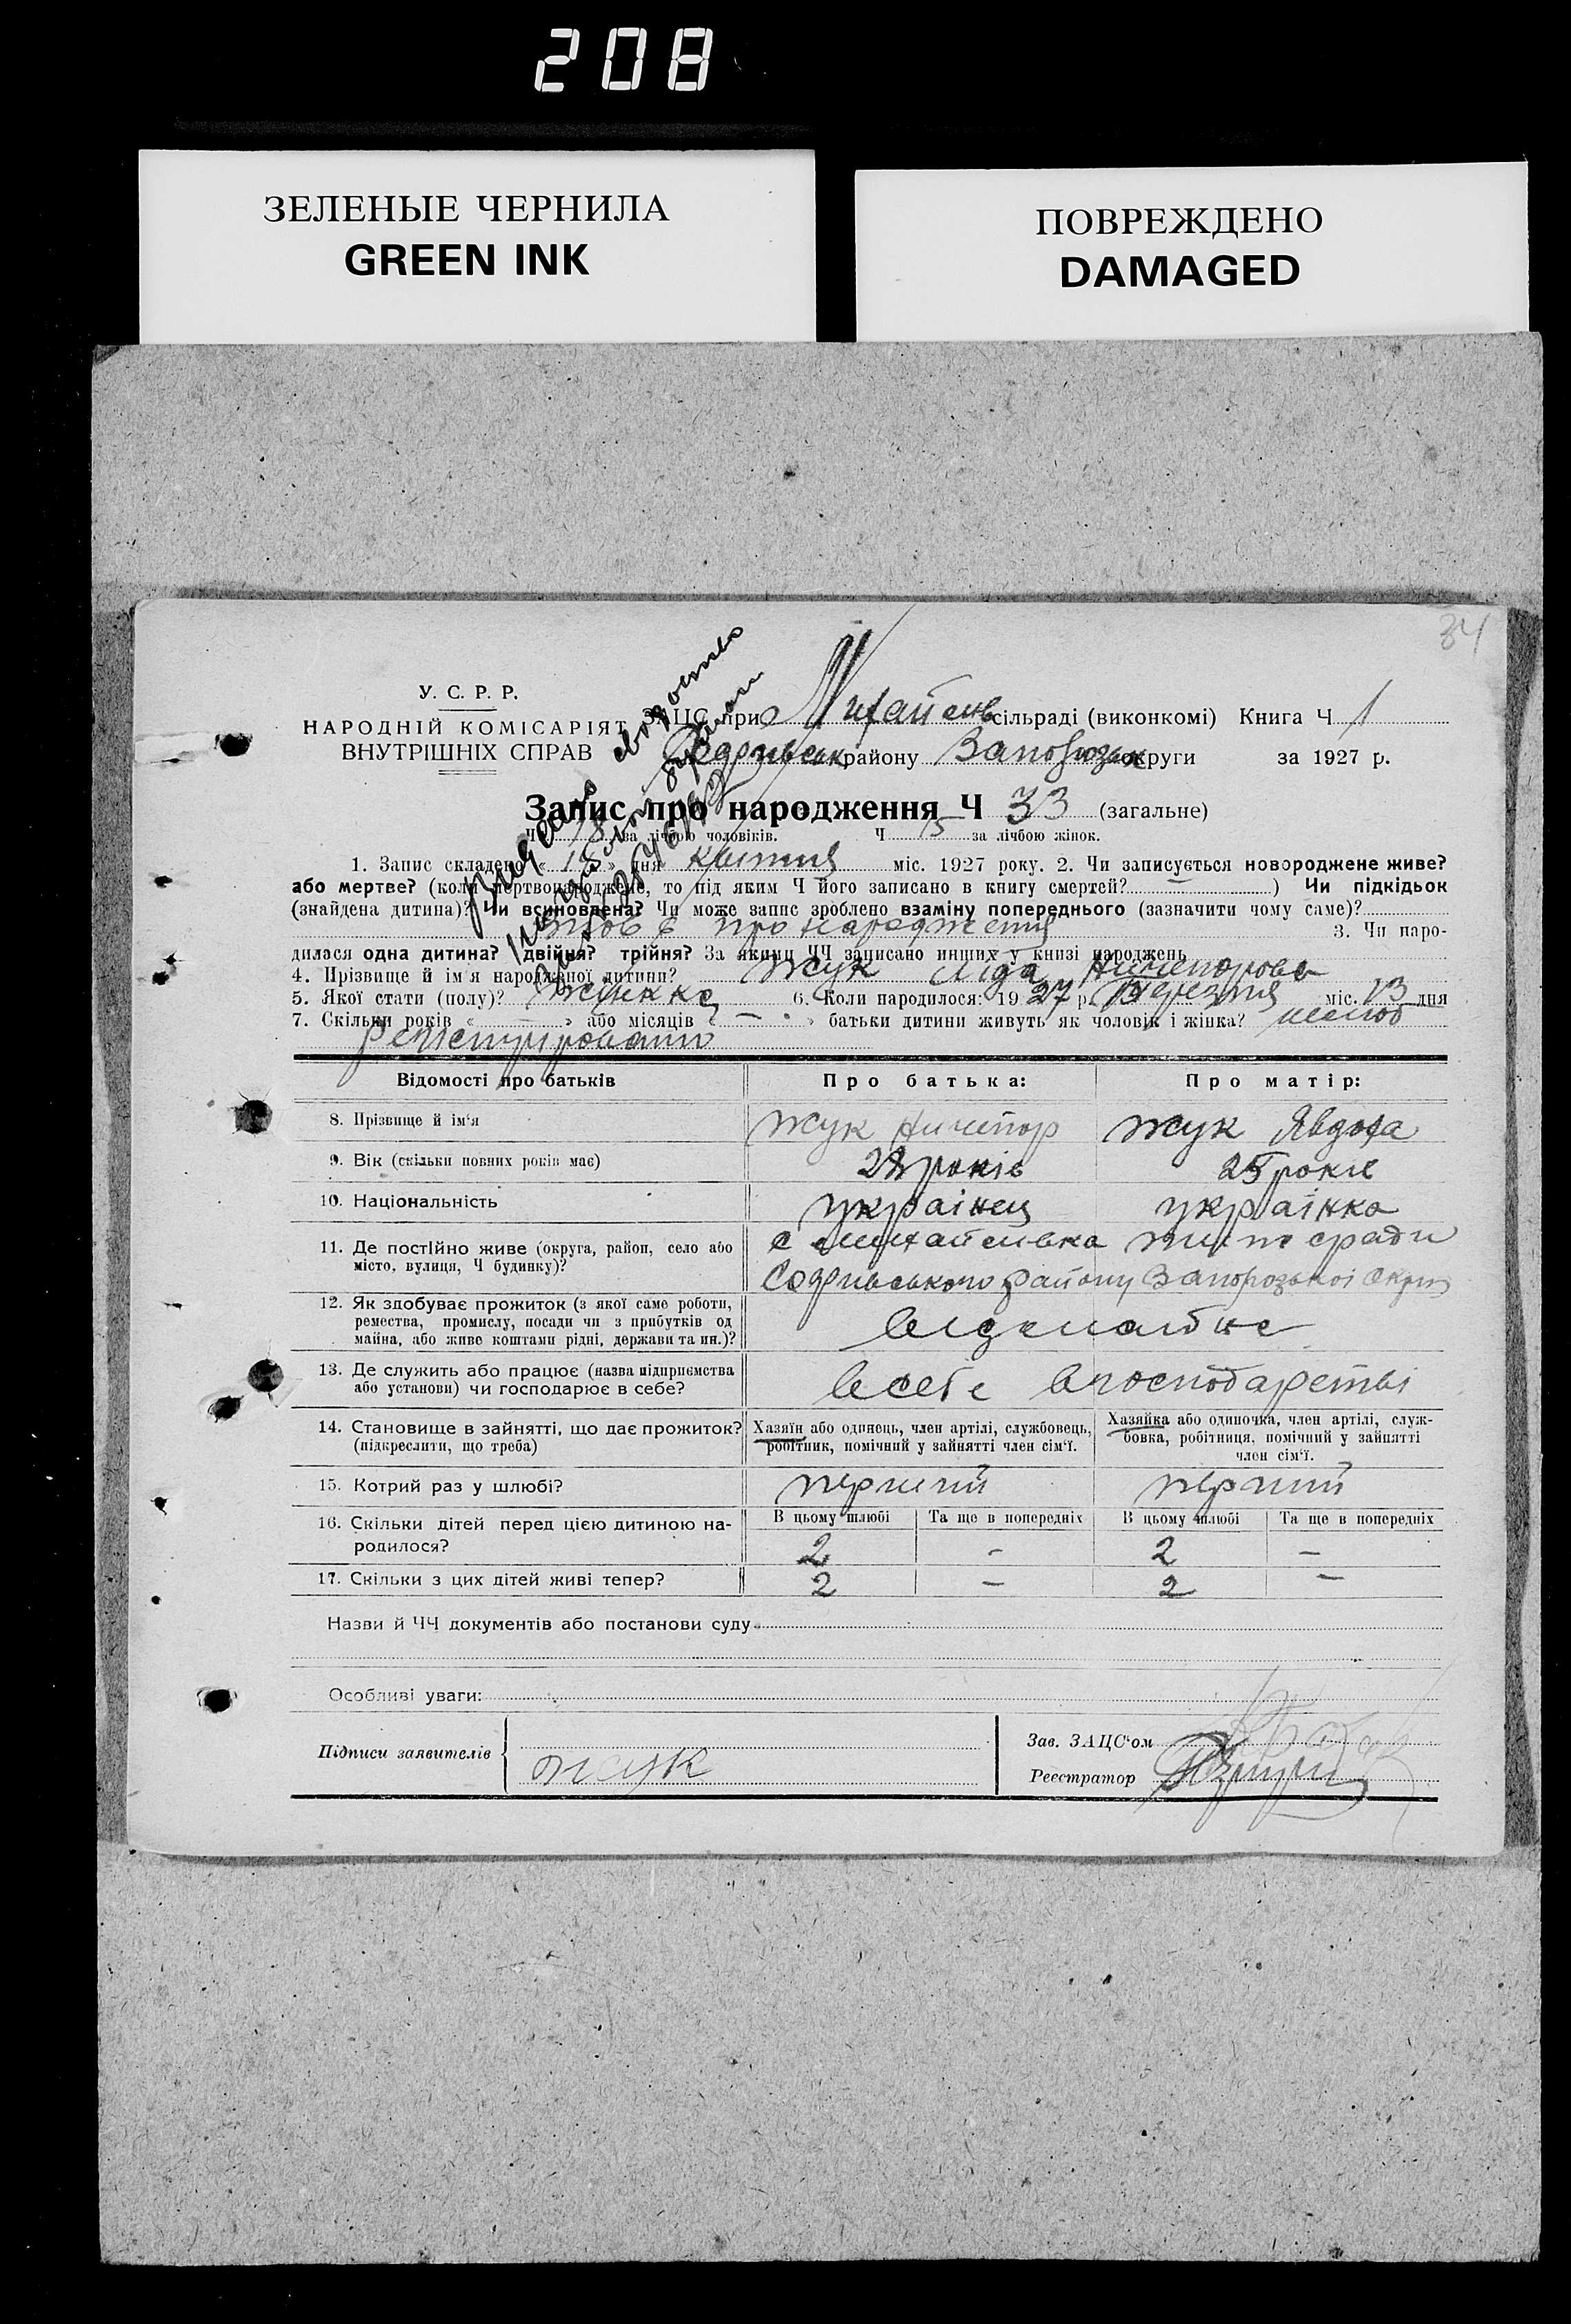 208
ЗЕЛЕНЫЕ ЧЕРНИЛА
GREEN INK
ПОВРЕЖДЕНО
DAMAGED
34
У. С. Р. Р.
НАРОДНІЙ КОМІСАРІЯТ
ВНУТРІШНІХ СПРАВ
ЗАЦС при сільраді (виконкомі) Книга Ч 1
району Запорізьк округи за 1927 р.
Запис про народження Ч 33 (загальне)
Ч 18 за лічбою чоловіків. Ч 15 за лічбою жінок.
1. Запис складено « 18 » дня квітня міс. 1927 року. 2. Чи записується новороджене живе?
або мертве? (коли мертвонароджене, то під яким Ч його записано в книгу смертей? — ) Чи підкідьок
(знайдена дитина)? Чи всиновлена? Чи може запис зроблено взаміну попереднього (зазначити чому саме)?
про народження 3. Чи наро-
дилася одна дитина? двійня? трійня? За якими ЧЧ записано инших у книзі народжень
4. Прізвище й ім'я народженої дитини? Жук Ліда Ничепорова
5. Якої стати (полу)? Жінка 6. Коли народилося: 1927 р. березня міс. 13 дня
7. Скільки років « — » або місяців « — » батьки дитини живуть як чоловік і жінка?
Відомості про батьків Про батька: Про матір:
8. Прізвище й ім'я Жук Ничепор Жук Явдоха
9. Вік (скільки повних років має) 28 років 25 років
10. Національність українец українка
11. Де постійно живе (округа, район, село або
місто, вулиця, Ч будинку)?
району Запорозької Округ
12. Як здобуває прожиток (з якої саме роботи,
ремества, промислу, посади чи з прибутків од
майна, або живе коштами рідні, держави та ин.)?
13. Де служить або працює (назва підприємства
або установи) чи господарює в себе?
в себе в господарстві
14. Становище в зайнятті, що дає прожиток?
(підкреслити, що треба)
Хазяїн або одинець, член артілі, службовець,
робітник, помічний у зайнятті член сім'ї.
Хазяйка або одиночка, член артілі, служ-
бовка, робітниця, помічний у зайнятті
член сім'ї.
15. Котрий раз у шлюбі? перший перший
16. Скільки дітей перед цією дитиною на-
родилося?
В цьому шлюбі Та ще в попередніх В цьому шлюбі Та ще в попередніх
2 – 2 –
17. Скільки з цих дітей живі тепер? 2 – 2 –
Назви й ЧЧ документів або постанови суду
Особливі уваги:
Підписи заявителів Жук
Зав. ЗАЦС'ом
Реєстратор